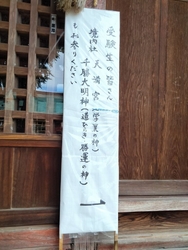 受験生の皆さん
境内社 天満宮(学業の神)
千勝大明神(道ひらき 勝運の神)
もお参りください